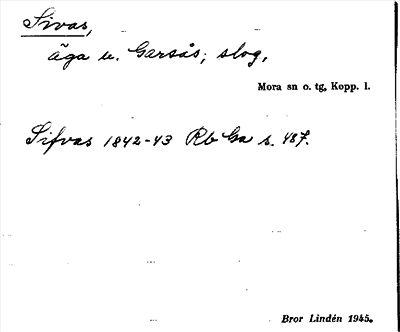 Sivas,
äga u. Garsås; slog,
Mora sn o. tg, Kopp. l.
Sifvas 1842-43 Rb Ga s. 487.
Bror Lindén 1945.